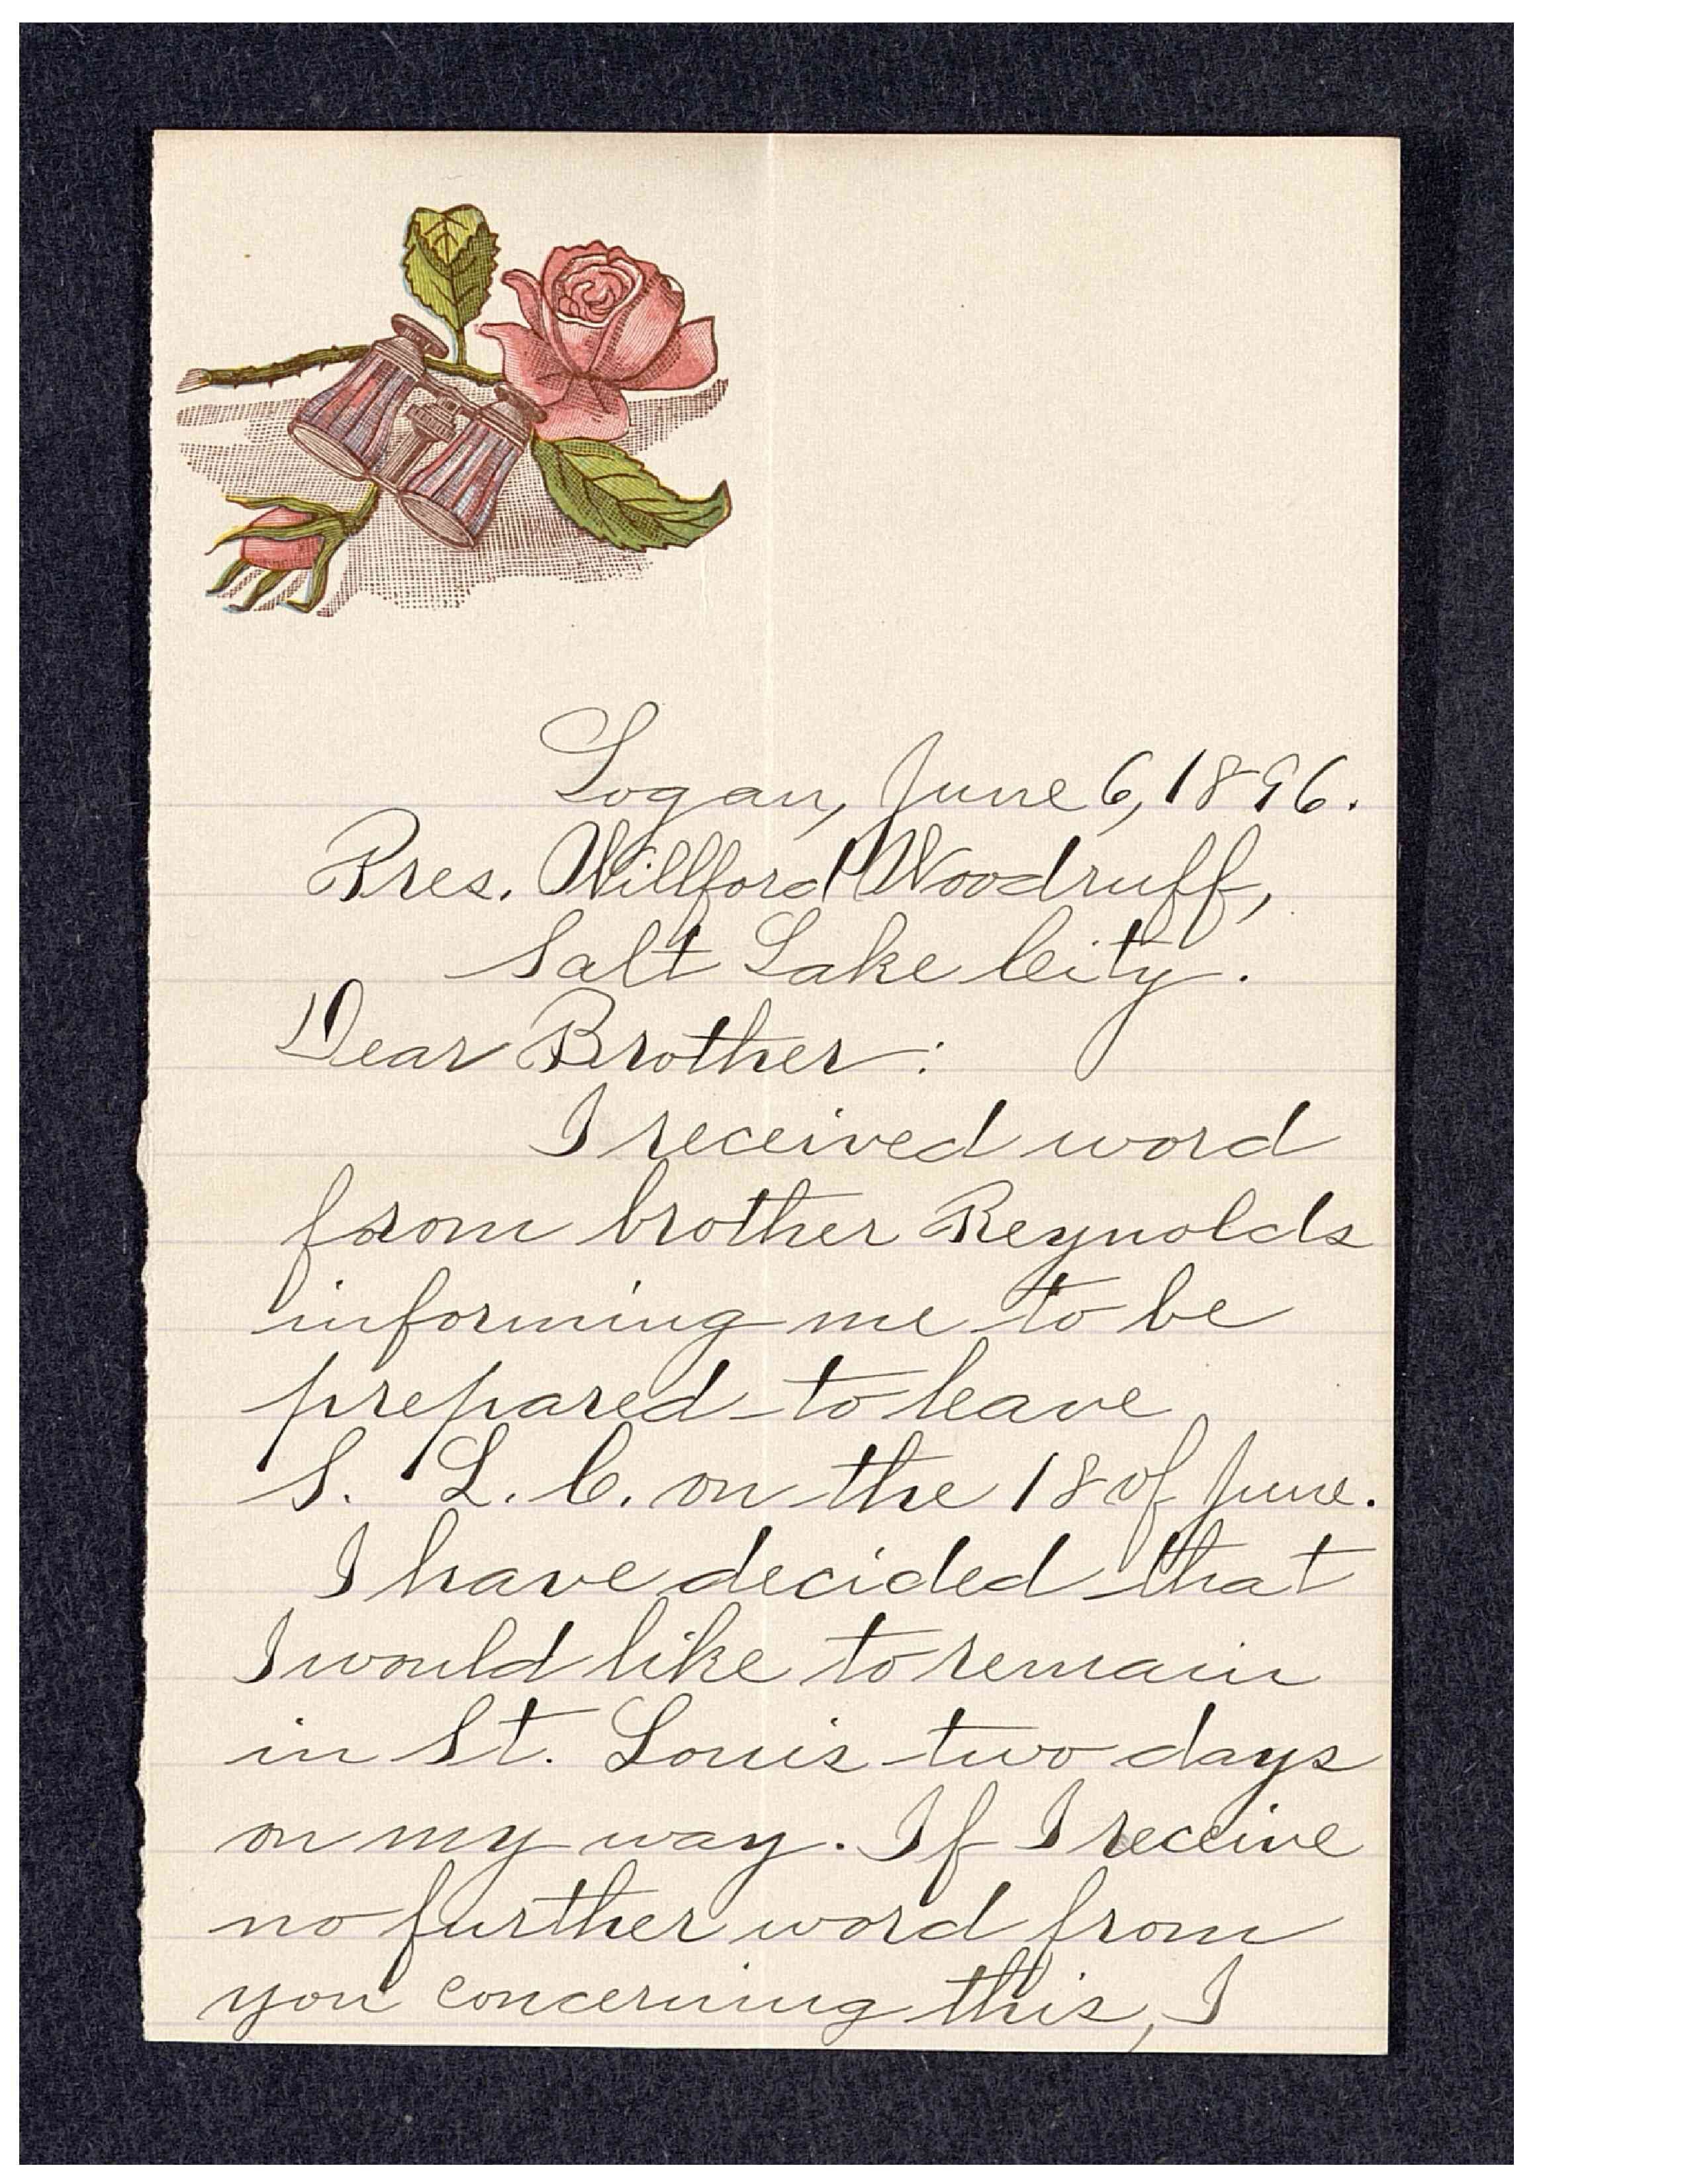 Logan, June 6, 1896.
Pres. Willford Woodruff,
Salt Lake City.
Dear Brother:
I received word
from brother Reynolds
informing me to be
prepared to leave
S. L. C. on the 18 of June.
I have decided that
I would like to remain
in St. Louis two days
on my way. If I receive
no further word from
you concerning this, I